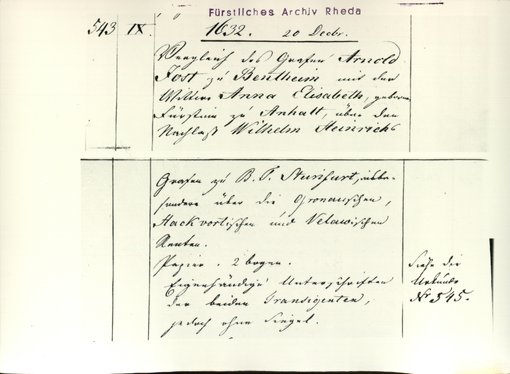 Fürstliches Archiv Rheda
543 IX. 1632. 20 Decbr.
Vergleich des Grafen Arnold
Jost zu Bentheim mit der
Wittwe Anna Elisabeth, geborne
Fürstin zu Anhalt, über den
Nachlaß Wilhelm Heinrichs
Grafen zu B. T. Steinfurt, insbe-
sondere über die Gronauischen,
Hackvortischen und Velawischen
Renten.
Papier. 2 bogen.
Eigenhändige Unterschriften
der beiden Transigenten,
jedoch ohne Siegel.
Siehe die
Urkunde
Nr. 545.